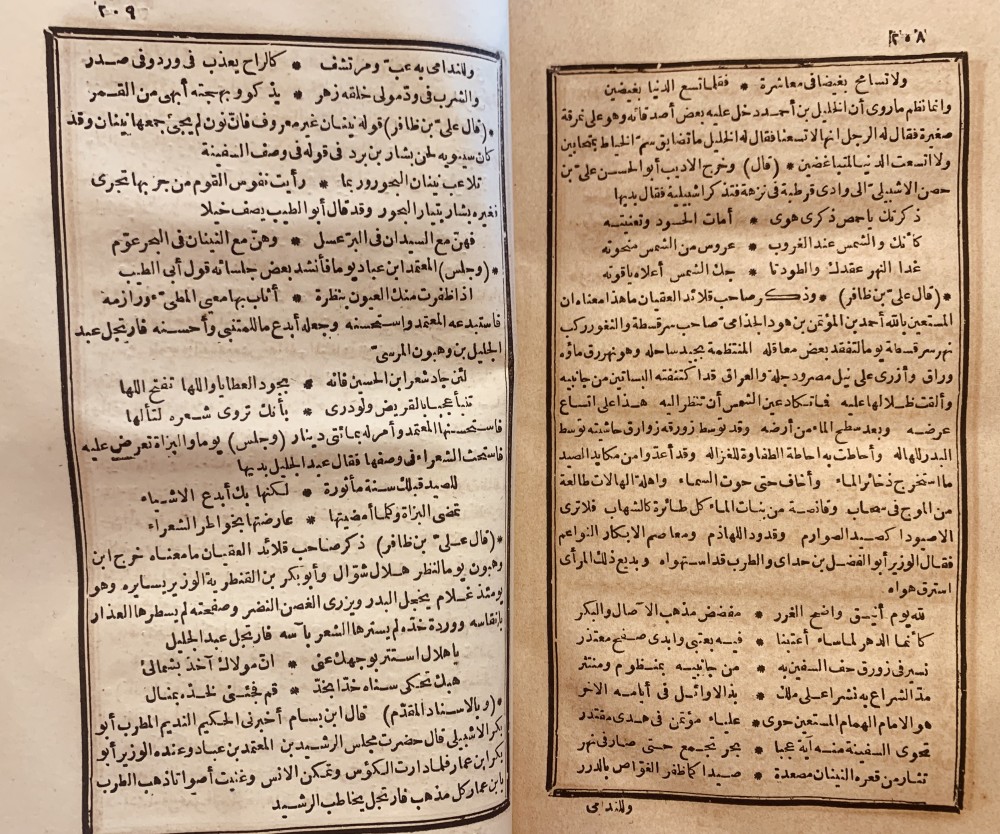 ٢٠٨
ولا تسامح بغيضا في معاشرة * فقلما تسع الدنيا بغيضين
وانما نظم ما روى أن الخليل بن أحمد دخل عليه بعض أصدقائه وهو على نمرقة
صغيرة فقال له الرجل انها لا تسعنا فقال له الخليل ما تضايق سم الخياط بمتحابين
ولا اتسعت الدنيا لمتباغضين * (قال) وخرج الاديب أبو الحسن على بن
حصن الاشبيلى الى وادى قرطبة في نزهة فتذكر اشبيلية فقال بديها
ذكرتك يا حمص ذكرى هوى * أمات الحسود وتعنيته
كأنك والشمس عند الغروب * عروس من الشمس منحوته
غدا النهر عقدك والطود تا * جك الشمس أعلاه ياقوته
* (قال على بن ظافر) * وذكر صاحب قلائد العقيان ما هذا معناه ان
المستعين بالله أحمد بن المؤتمن بن هود الجذامى صاحب سرقسطة والثغور ركب
نهر سرقسطة يوما لتفقد بعض معاقله المنتظمة بجيد ساحله وهو نهر رق ماؤه
وراق وأزرى على نيل مصر ودجلة والعراق قد اكتنفته البساتين من جانبيه
وألقت ظلالها عليه فما تكاد عين الشمس أن تنظر اليه هذا على اتساع
عرضه وبعد سطح الماء من أرضه وقد توسط زورقه زوارق حاشيته توسط
البدر للهاله وأحاطت به احاطة الطفاوة للغزاله وقد أعدوا من مكايد الصيد
ما استخرج ذخائر الماء وأخاف حتى حوت السماء واهلة الهالات طالعة
من الموج في سحاب وقانصة من بنات الماء كل طائرة كالشهاب فلا ترى
الا صيودا كصيد الصوارم وقدود اللهاذم ومعاصم الابكار النواعم
فقال الوزير أبو الفضل بن حداى والطرب قد استهواه وبديع ذلك المرأى
استرق هواه
لله يوم أنيق واضح الغرر * مفضض مذهب الآصال والبكر
كأنما الدهر لما ساء أعتبنا * فيه بعتبى وابدى صفح معتذر
نسير في زورق حف السفين به * من جانبيه بمنظوم ومنتثر
مد الشراع به نشرا على ملك * بذ الاوائل في أيامه الاخر
هو الامام الهمام المستعين حوى * علياء مؤتمن في هدى مقتدر
تحوى السفينة منه آية عجبا * بحر تجمع حتى صار في نهر
تثار من قعره النينان مصعدة * صيدا كما ظفر الغواص بالدرر
وللندامى
٢٠٩
وللندامى به عب ومرتشف * كالراح يعذب في ورد وفى صدر
والشرب في ود مولى خلقه زهر * يذكو وبهجته أبهى من القمر
* (قال على بن ظافر) قوله نينان غير معروف فان نون لم يجئ جمعها نينان وقد
كان سيبويه لحن بشار بن برد في قوله في وصف السفينة
تلاعب نينان البحور وربما * رأيت نفوس القوم من جريها تجرى
فغيره بشار بتيار البحور وقد قال أبو الطيب يصف خيلا
فهن مع السيدان في البر عسل * وهن مع النينان في البحر عوم
* (وجلس) المعتمد ابن عباد يوما فأنشد بعض جلسائه قول أبى الطيب
اذا ظفرت منك العيون بنظرة * أثاب بها معيى المطى ورازمه
فاستبدعه المعتمد واستحسنه وجعله أبدع ما للمتنبى وأحسنه فارتجل عبد
الجليل بن وهبون المرسى
لئن جاد شعر ابن الحسين فانه * بجود العطايا واللها تفتح اللها
تنبأ عجبا بالقريض ولو درى * بأنك تروى شعره لتألها
فاستحسنها المعتمد وأمر له بمائتى دينار (وجلس) يوما والبزاة تعرض عليه
فاستحث الشعراء في وصفها فقال عبد الجليل بديها
للصيد قبلك سنة مأثورة * لكنها بك أبدع الاشياء
تمضى البزاة وكلما أمضيتها * عارضتها بخواطر الشعراء
* (قال على بن ظافر) ذكر صاحب قلائد العقيان ما معناه خرج ابن
وهبون يوما لنظر هلال شوال وأبو بكر بن القنطرية الوزير يسايره وهو
يومئذ غلام يخجل البدر ويزرى الغصن النضر وصفحته لم يسطرها العذار
بأنقاسه ووردة خده لم يسترها الشعر بآسه فارتجل عبد الجليل
يا هلال استتر بوجهك عنى * ان مولاك آخذ بشمالى
هبك تحكى سناه خدا بخد * قم فجئنى لخده بمثال
* (وبالاسناد المقدم) قال ابن بسام أخبرنى الحكيم النديم المطرب أبو
بكر الاشبيلى قال حضرت مجلس الرشيد بن المعتمد بن عباد وعنده الوزير أبو
بكر ابن عمار فلما دارت الكؤس وتمكن الانس وغنيت أصواتا ذهب الطرب
بابن عمار كل مذهب فارتجل يخاطب الرشيد